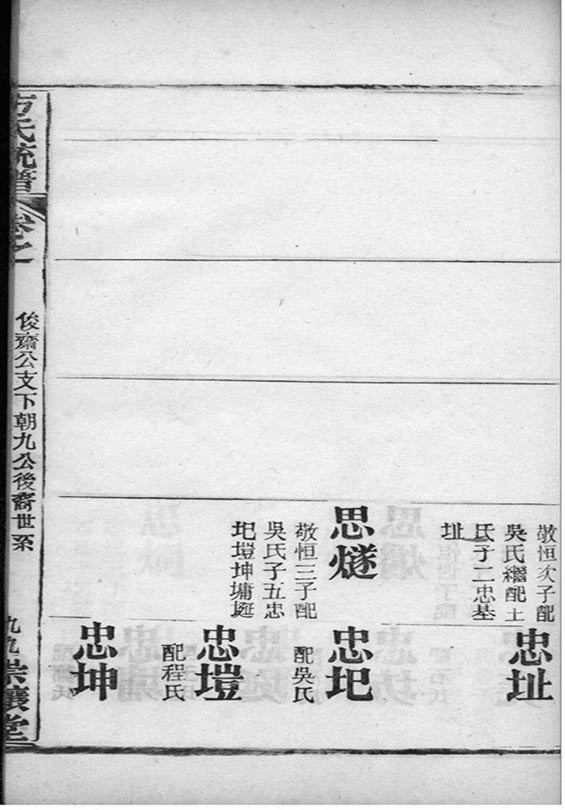 敬恒次子配
吳氏繼配土
氏子二忠基
址
忠址
思燧
敬恒三子配
吳氏子五忠
圯塏坤墉埏
忠圯
配吳氏
忠塏
配程氏
忠坤
方氏統譜
卷之一
俊齋公支下朝九公後裔世系
九九
崇讓堂